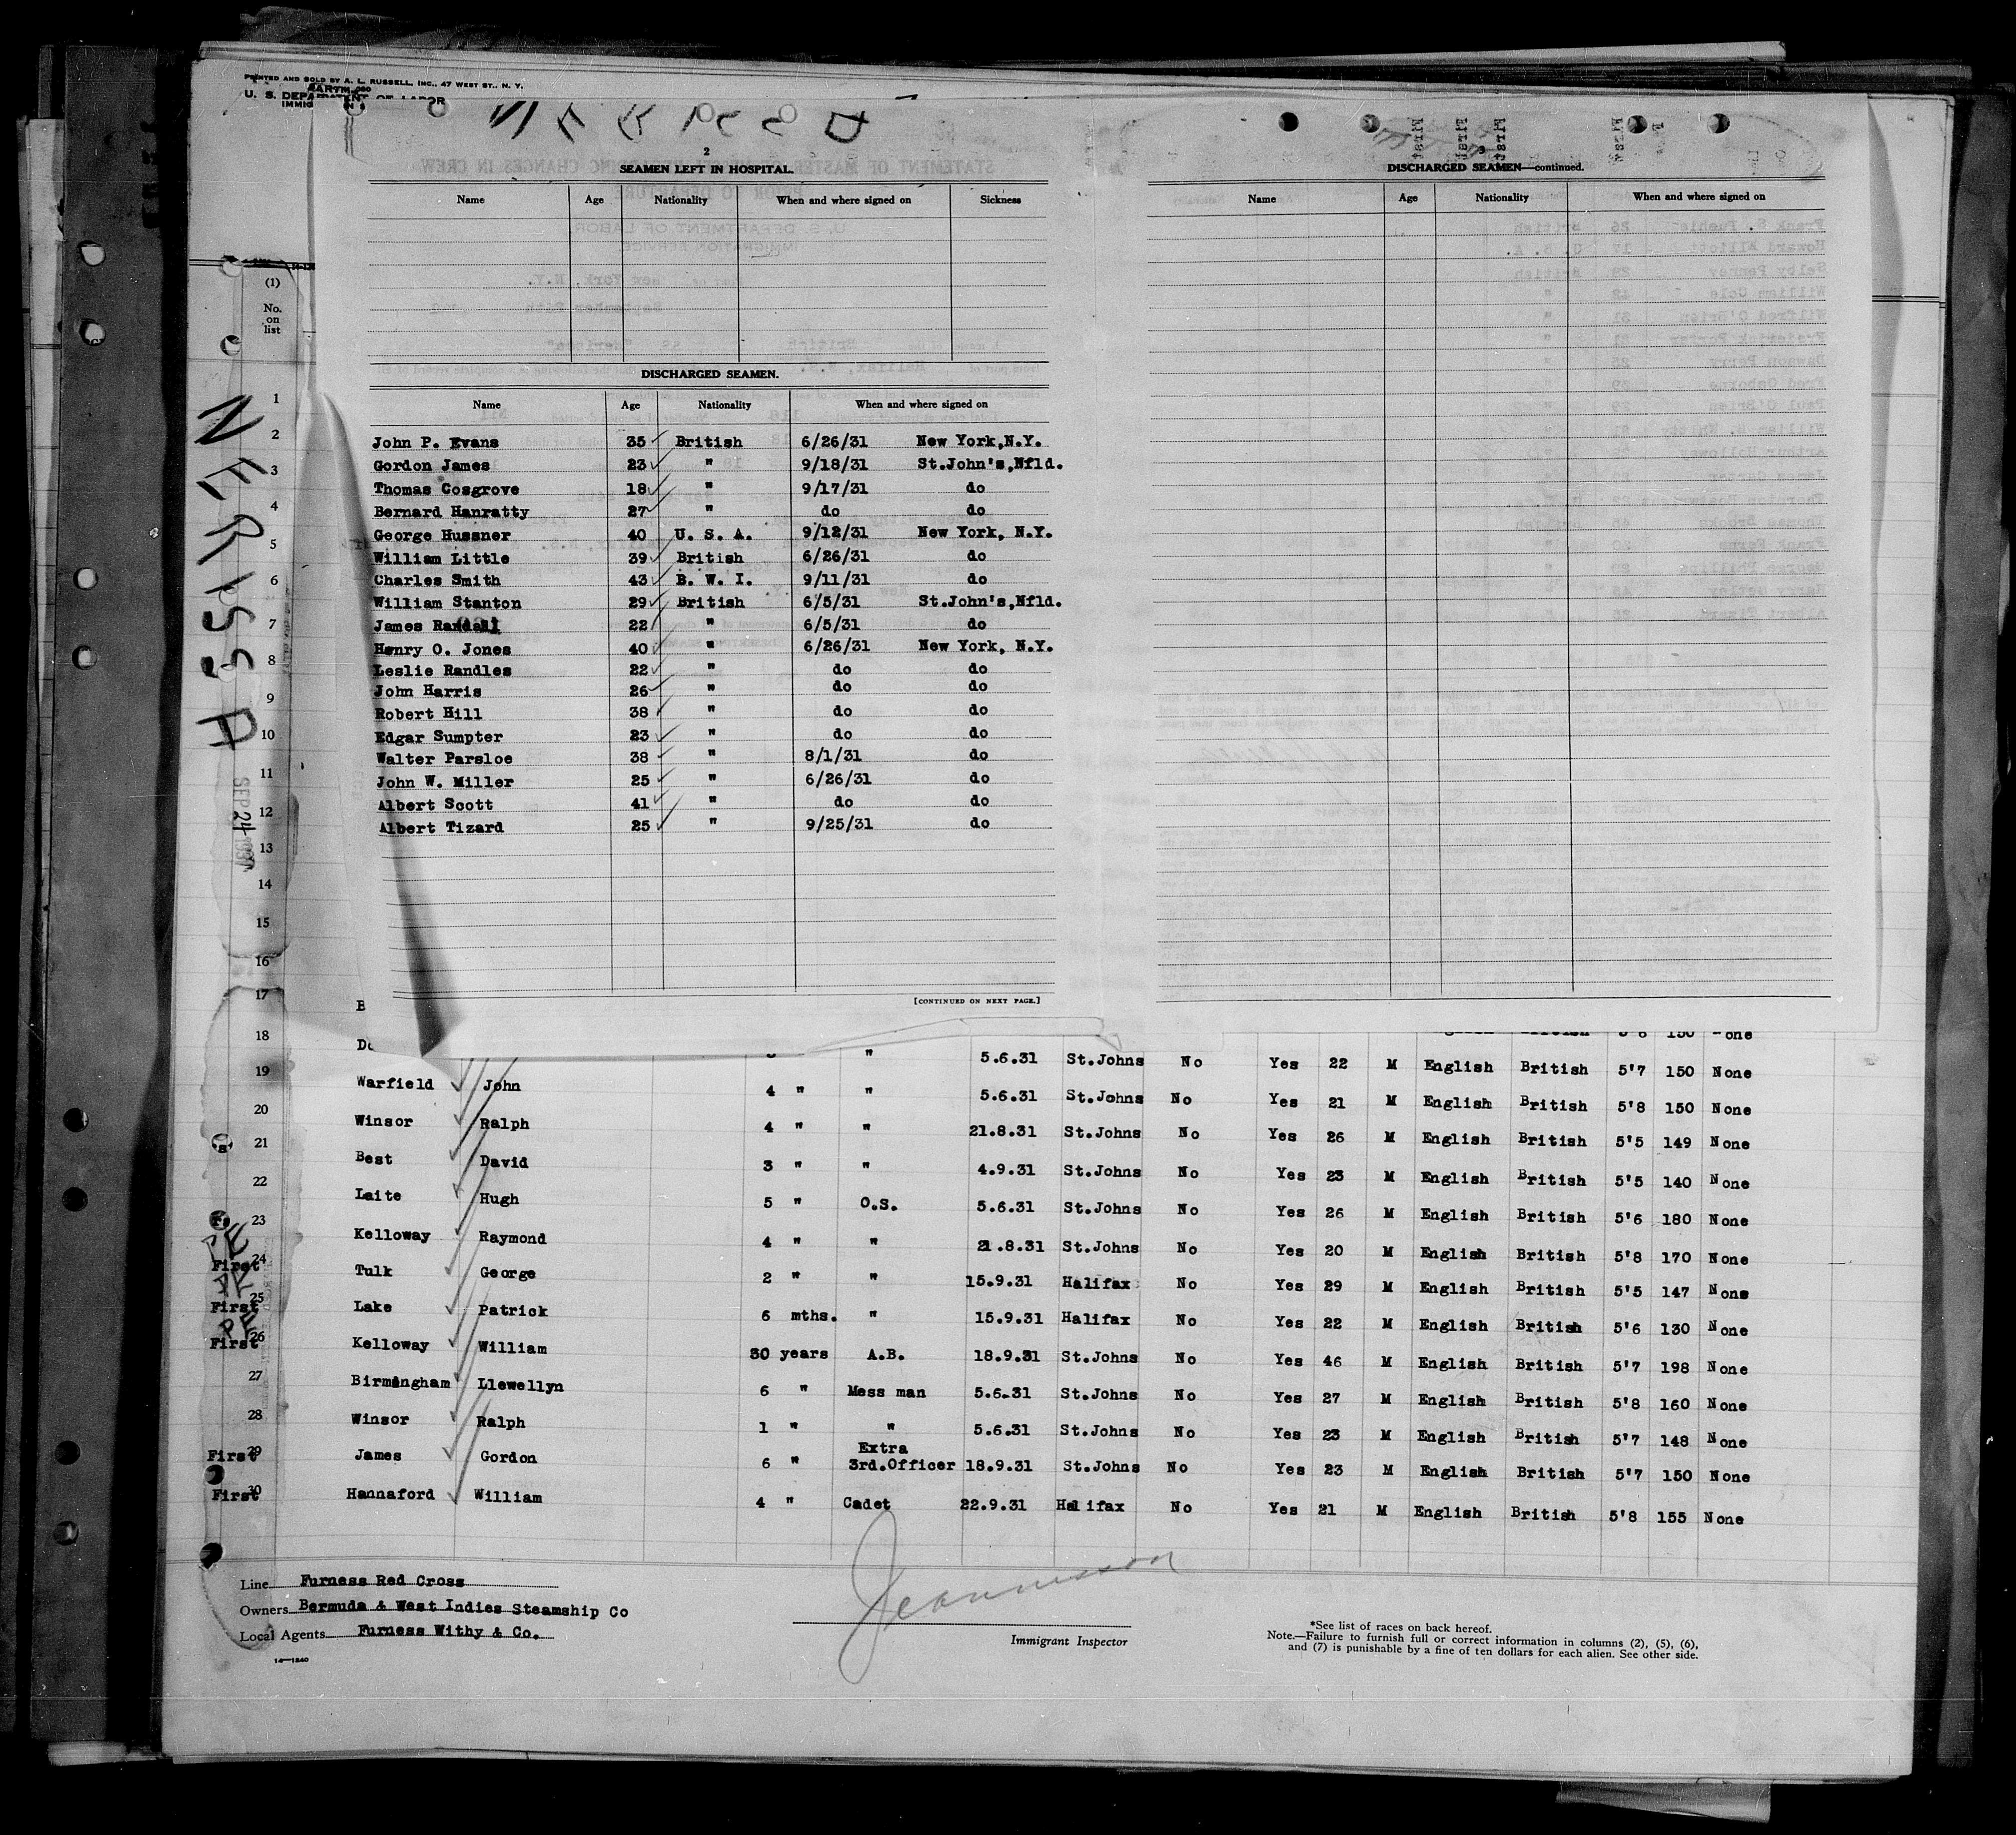 PRINTED AND SOLD BY A. L. RUSSELL, INC., 47 WEST ST., N. Y.
U. S. DEPARTMENT OF LABOR
NERISSA
2
SEAMEN LEFT IN HOSPITAL.
Name Age Nationality When and where signed on Sickness
DISCHARGED SEAMEN.
Name Age Nationality When and where signed on
John P. Evans 35 British 6/26/31 New York,N.Y.
Gordon James 23 " 9/18/31 St.John's,Nfld.
Thomas Cosgrove 18 " 9/17/31 do
Bernard Hanratty 27 " do do
George Hussner 40 U. S. A. 9/12/31 New York, N.Y.
William Little 39 British 6/26/31 do
Charles Smith 43 B. W. I. 9/11/31 do
William Stanton 29 British 6/5/31 St.John's,Nfld.
James Randall 22 " 6/5/31 do
Henry O. Jones 40 " 6/26/31 New York, N.Y.
Leslie Randles 22 " do do
John Harris 26 " do do
Robert Hill 38 " do do
Edgar Sumpter 23 " do do
Walter Parsloe 38 " 8/1/31 do
John W. Miller 25 " 6/26/31 do
Albert Scott 41 " do do
Albert Tizard 25 " 9/25/31 do
[CONTINUED ON NEXT PAGE.]
DISCHARGED SEAMEN—continued.
Name Age Nationality When and where signed on
First First First First
(1)
No.
on
list
1
2
3
4
5
6
7
8
9
10
11
12
13
14
15
16
17
18
NERISSA
SEP 24 1931
150
" 5.6.31 St.Johns No Yes 22 M English British 5'7 150 None
19 Warfield John 4 " " 5.6.31 St.Johns No Yes 21 M English British 5'8 150 None
20 Winsor Ralph 4 " " 21.8.31 St.Johns No Yes 26 M English British 5'5 149 None
21 Best David 3 " " 4.9.31 St.Johns No Yes 23 M English British 5'5 140 None
22 Laite Hugh 5 " O.S. 5.6.31 St.Johns No Yes 26 M English British 5'6 180 None
23 Kelloway Raymond 4 " " 21.8.31 St.Johns No Yes 20 M English British 5'8 170 None
First 24 Tulk George 2 " " 15.9.31 Halifax No Yes 29 M English British 5'5 147 None
First 25 Lake Patrick 6 mths. " 15.9.31 Halifax No Yes 22 M English British 5'6 130 None
First 26 Kelloway William 30 years A.B. 18.9.31 St.Johns No Yes 46 M English British 5'7 198 None
27 Birmingham Llewellyn 6 " Mess man 5.6.31 St.Johns No Yes 27 M English British 5'8 160 None
28 Winsor Ralph 1 " " 5.6.31 St.Johns No Yes 23 M English British 5'7 148 None
First 29 James Gordon 6 " Extra 3rd.Officer 18.9.31 St.Johns No Yes 23 M English British 5'7 150 None
First 30 Hannaford William 4 " Cadet 22.9.31 Halifax No Yes 21 M English British 5'8 155 None
Line Furness Red Cross
Owners Bermuda & West Indies Steamship Co
Local Agents Furness Withy & Co.
14—1240
Immigrant Inspector
*See list of races on back hereof.
Note.—Failure to furnish full or correct information in columns (2), (5), (6),
and (7) is punishable by a fine of ten dollars for each alien. See other side.